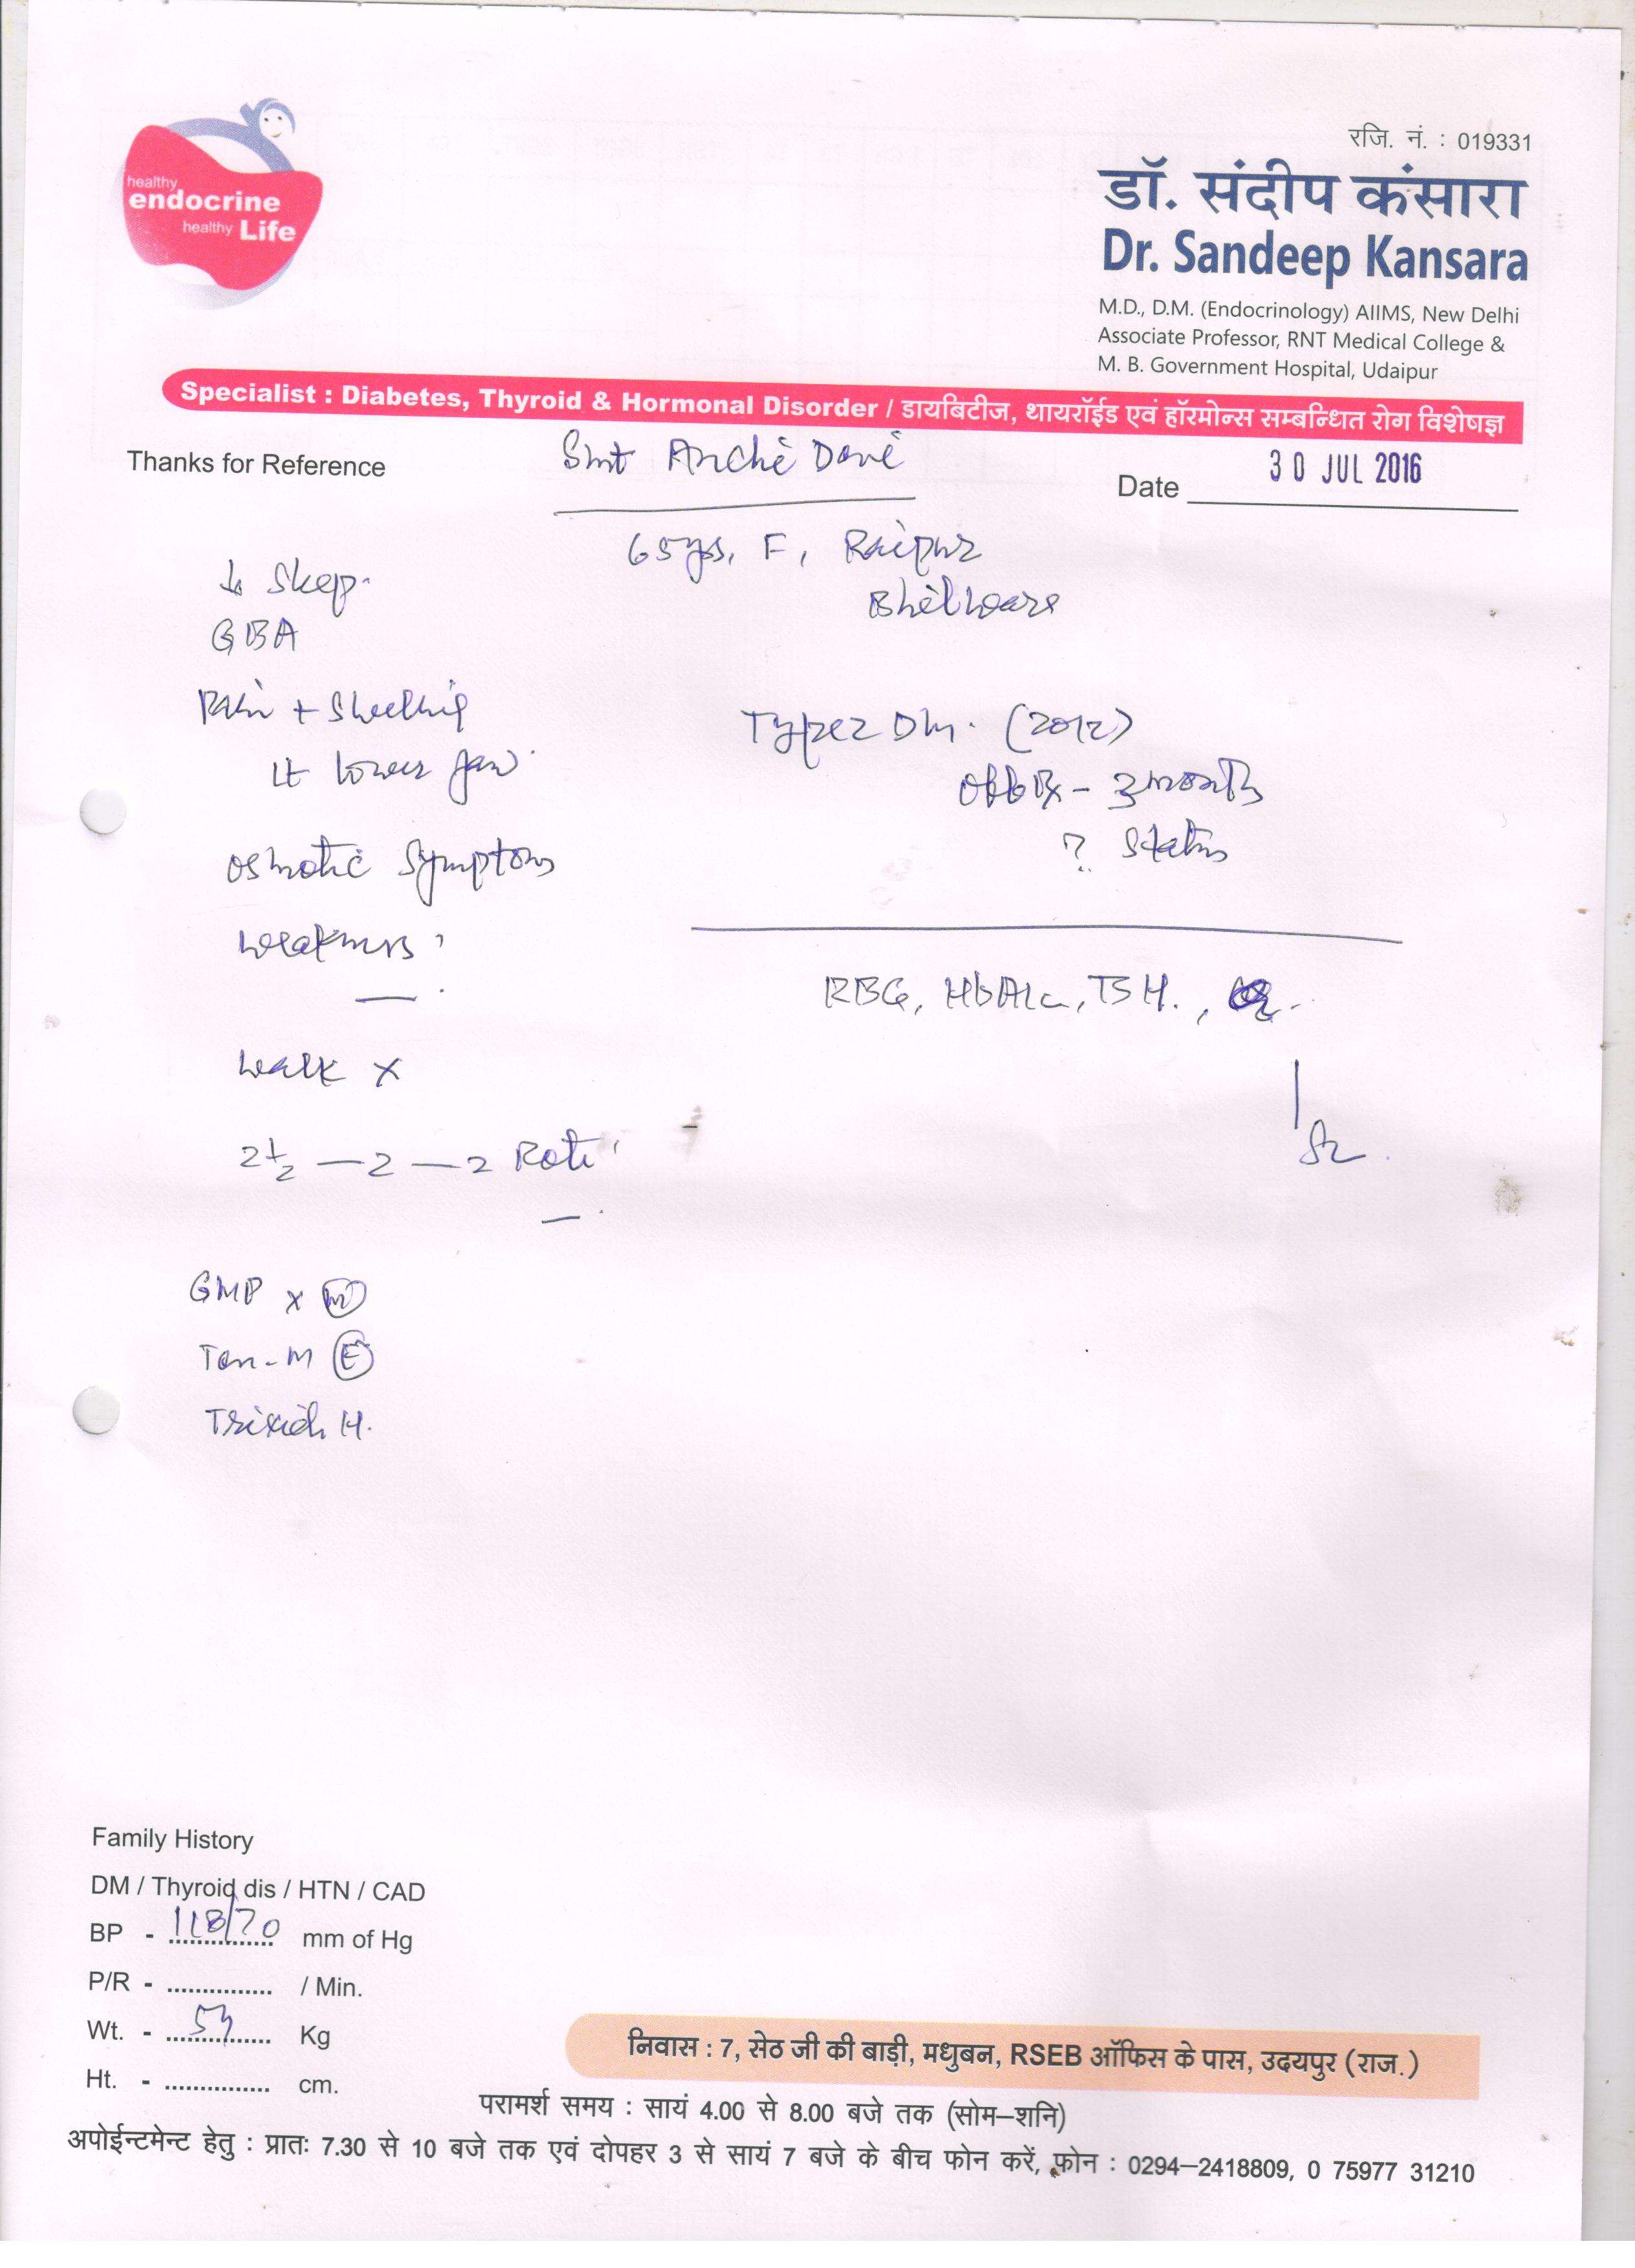 healthy
endocrine
healthy Life
रजि. नं. : 019331
डॉ. संदीप कंसारा
Dr. Sandeep Kansara
M.D., D.M. (Endocrinology) AIIMS, New Delhi
Associate Professor, RNT Medical College &
M. B. Government Hospital, Udaipur
Specialist : Diabetes, Thyroid & Hormonal Disorder / डायबिटीज, थायरॉईड एवं हॉरमोन्स सम्बन्धित रोग विशेषज्ञ
Thanks for Reference
Smt
Date 30 JUL 2016
65 yrs, F, Raipur
Bhilwara
↓ Sleep
GBA
Pain + Swelling
Lt lower jaw
Osmotic Symptoms
Weakness
Walk x
2½ — 2 — 2 Roti
GMP x M
Ten-M E
H.
Type 2 DM. (2012)
Off Rx - 3 months
? Status
RBG, HbA1c, TSH.,
Family History
DM / Thyroid dis / HTN / CAD
BP - 118/70 mm of Hg
P/R - ............... / Min.
Wt. - Kg
Ht. - ............... cm.
निवास : 7, सेठ जी की बाड़ी, मधुबन, RSEB ऑफिस के पास, उदयपुर (राज.)
परामर्श समय : सायं 4.00 से 8.00 बजे तक (सोम–शनि)
अपोईन्टमेन्ट हेतु : प्रातः 7.30 से 10 बजे तक एवं दोपहर 3 से सायं 7 बजे के बीच फोन करें, फोन : 0294–2418809, 0 75977 31210